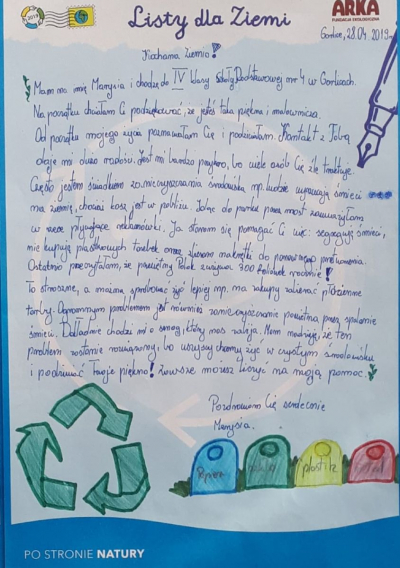 2019
Listy dla Ziemi
ARKA
FUNDACJA EKOLOGICZNA
Gorlice, 28.04.2019r.
Kochana Ziemio!
Mam na imię Marysia i chodzę do IV klasy Szkoły Podstawowej nr 4 w Gorlicach.
Na początku chciałam Ci podziękować, że jesteś taka piękna i malownicza.
Od początku mojego życia poznawałam Cię i podziwiałam. Kontakt z Tobą
daje mi dużo radości. Jest mi bardzo przykro, bo wiele osób Cię źle traktuje.
Często jestem świadkiem zanieczyszczania środowiska np. ludzie wyrzucają śmieci
na ziemię, chociaż kosz jest w pobliżu. Idąc do parku przez most zauważyłam
w rzece pływające reklamówki. Ja staram się pomagać Ci więc segreguję śmieci,
nie kupuję plastikowych torebek oraz zbieram nakrętki do ponownego przetworzenia.
Ostatnio przeczytałam, że przeciętny Polak zużywa 300 foliówek rocznie!
To straszne, a można spróbować żyć lepiej np. na zakupy zabierać płócienne
torby. Ogromnym problemem jest również zanieczyszczanie powietrza przez spalanie
śmieci. Dokładnie chodzi mi o smog, który nas zabija. Mam nadzieję, że ten
problem zostanie rozwiązany, bo wszyscy chcemy żyć w czystym środowisku
i podziwiać Twoje piękno! Zawsze możesz liczyć na moją pomoc.
Pozdrawiam Cię serdecznie
Marysia.
Papier plastik
PO STRONIE NATURY